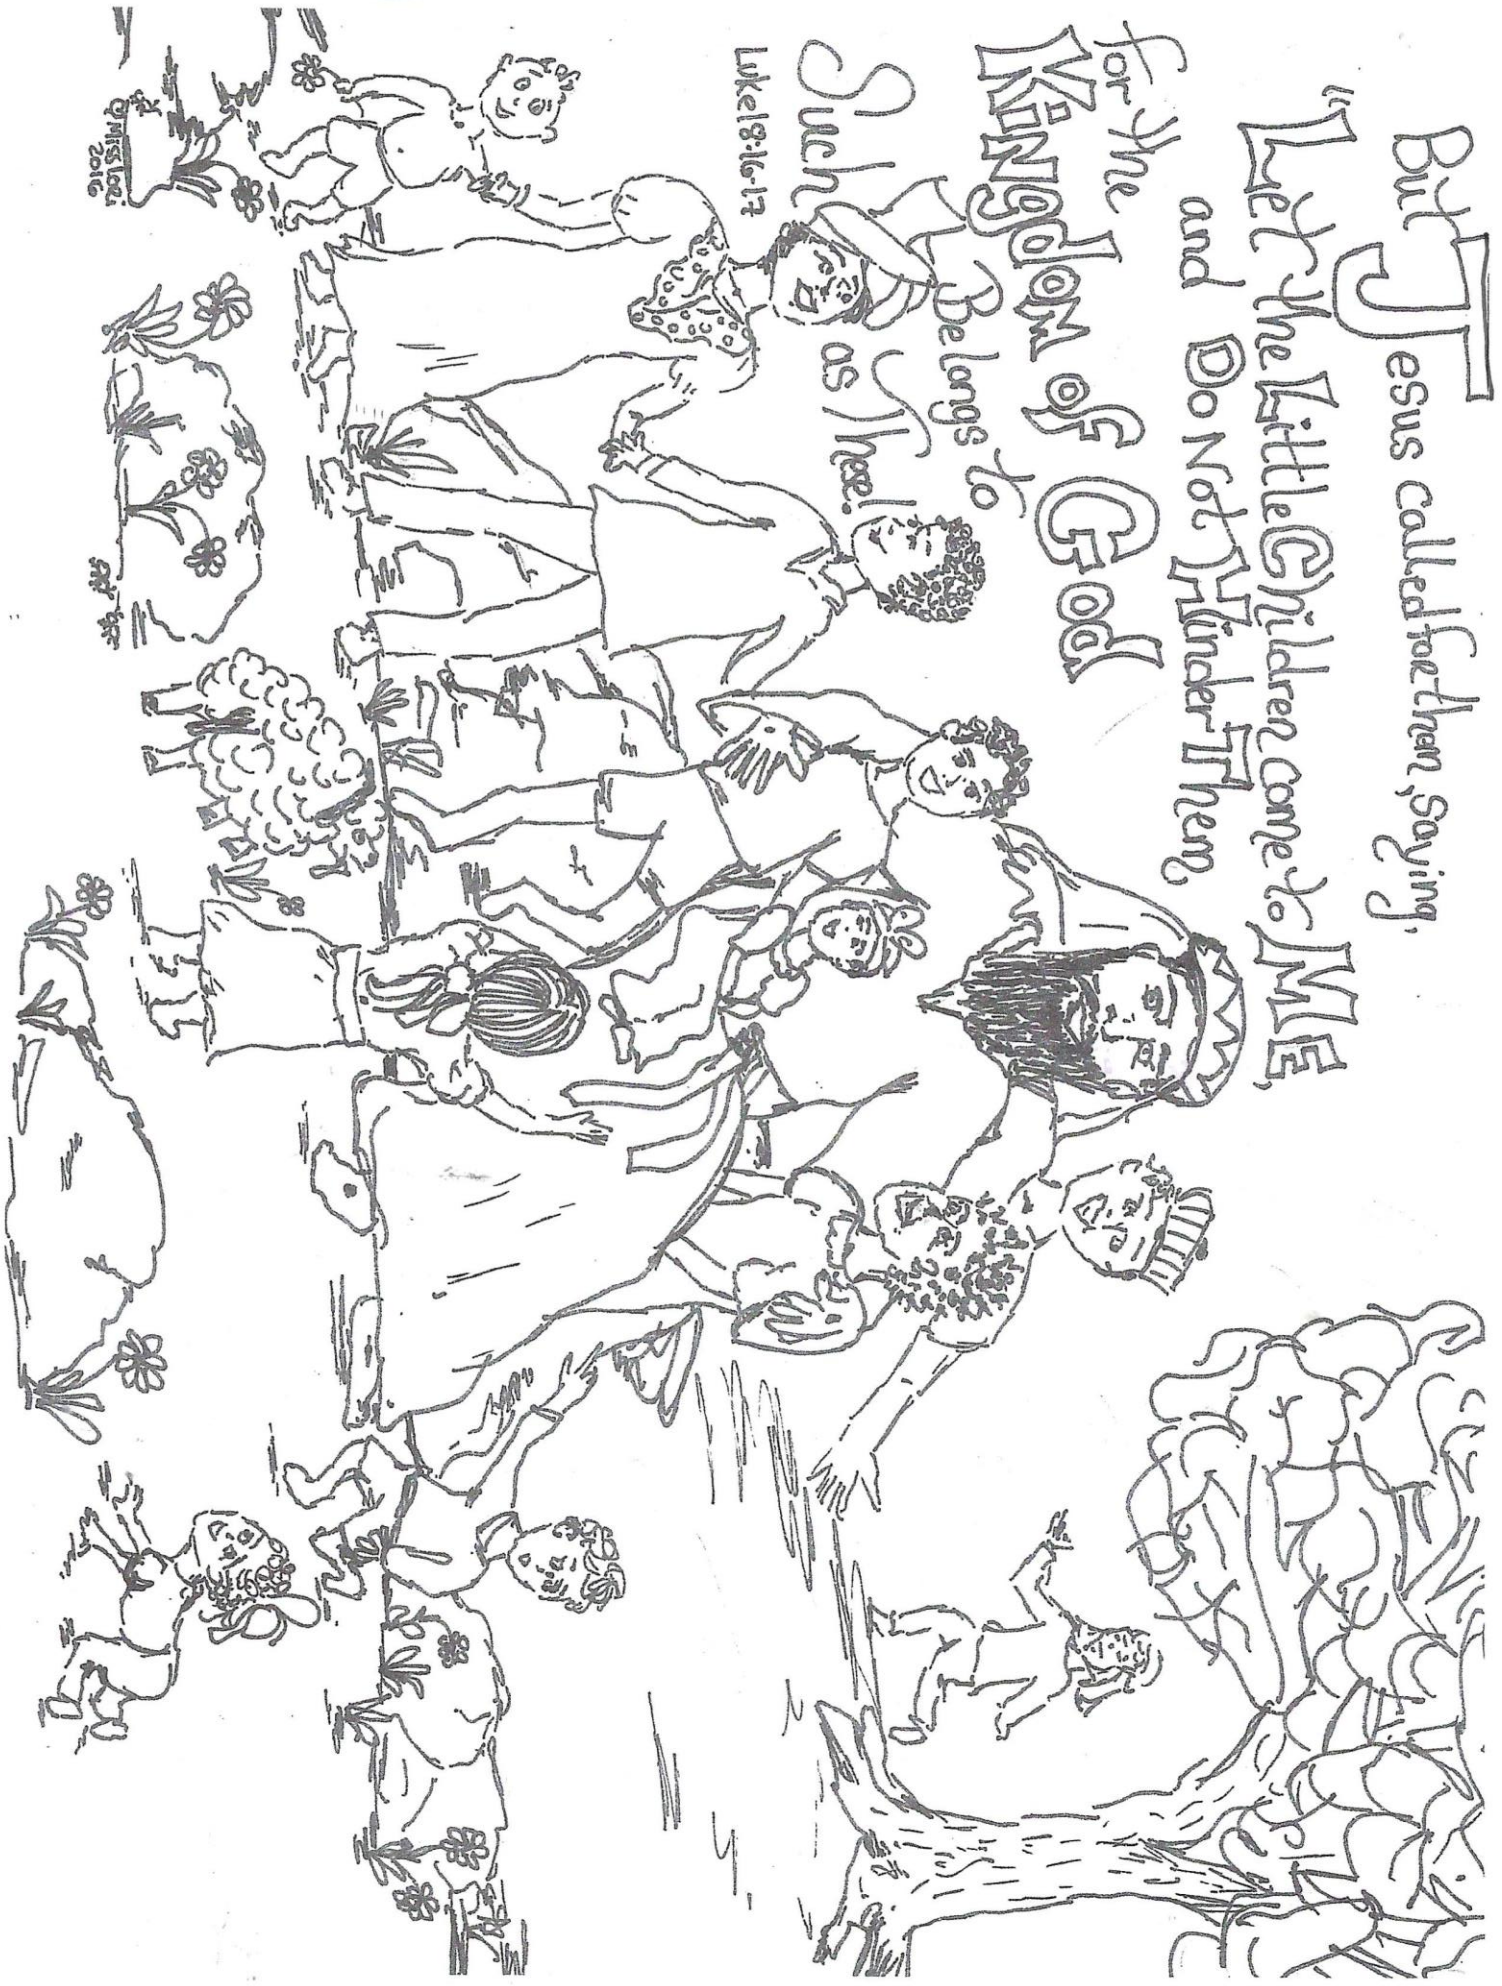 But Jesus called for them, Saying,
"Let the Little Children come to ME,
and Do Not Hinder Them,
For the
Kingdom of God
Belongs to
Such as These!
Luke 18:16-17
©Miss Lori
2016